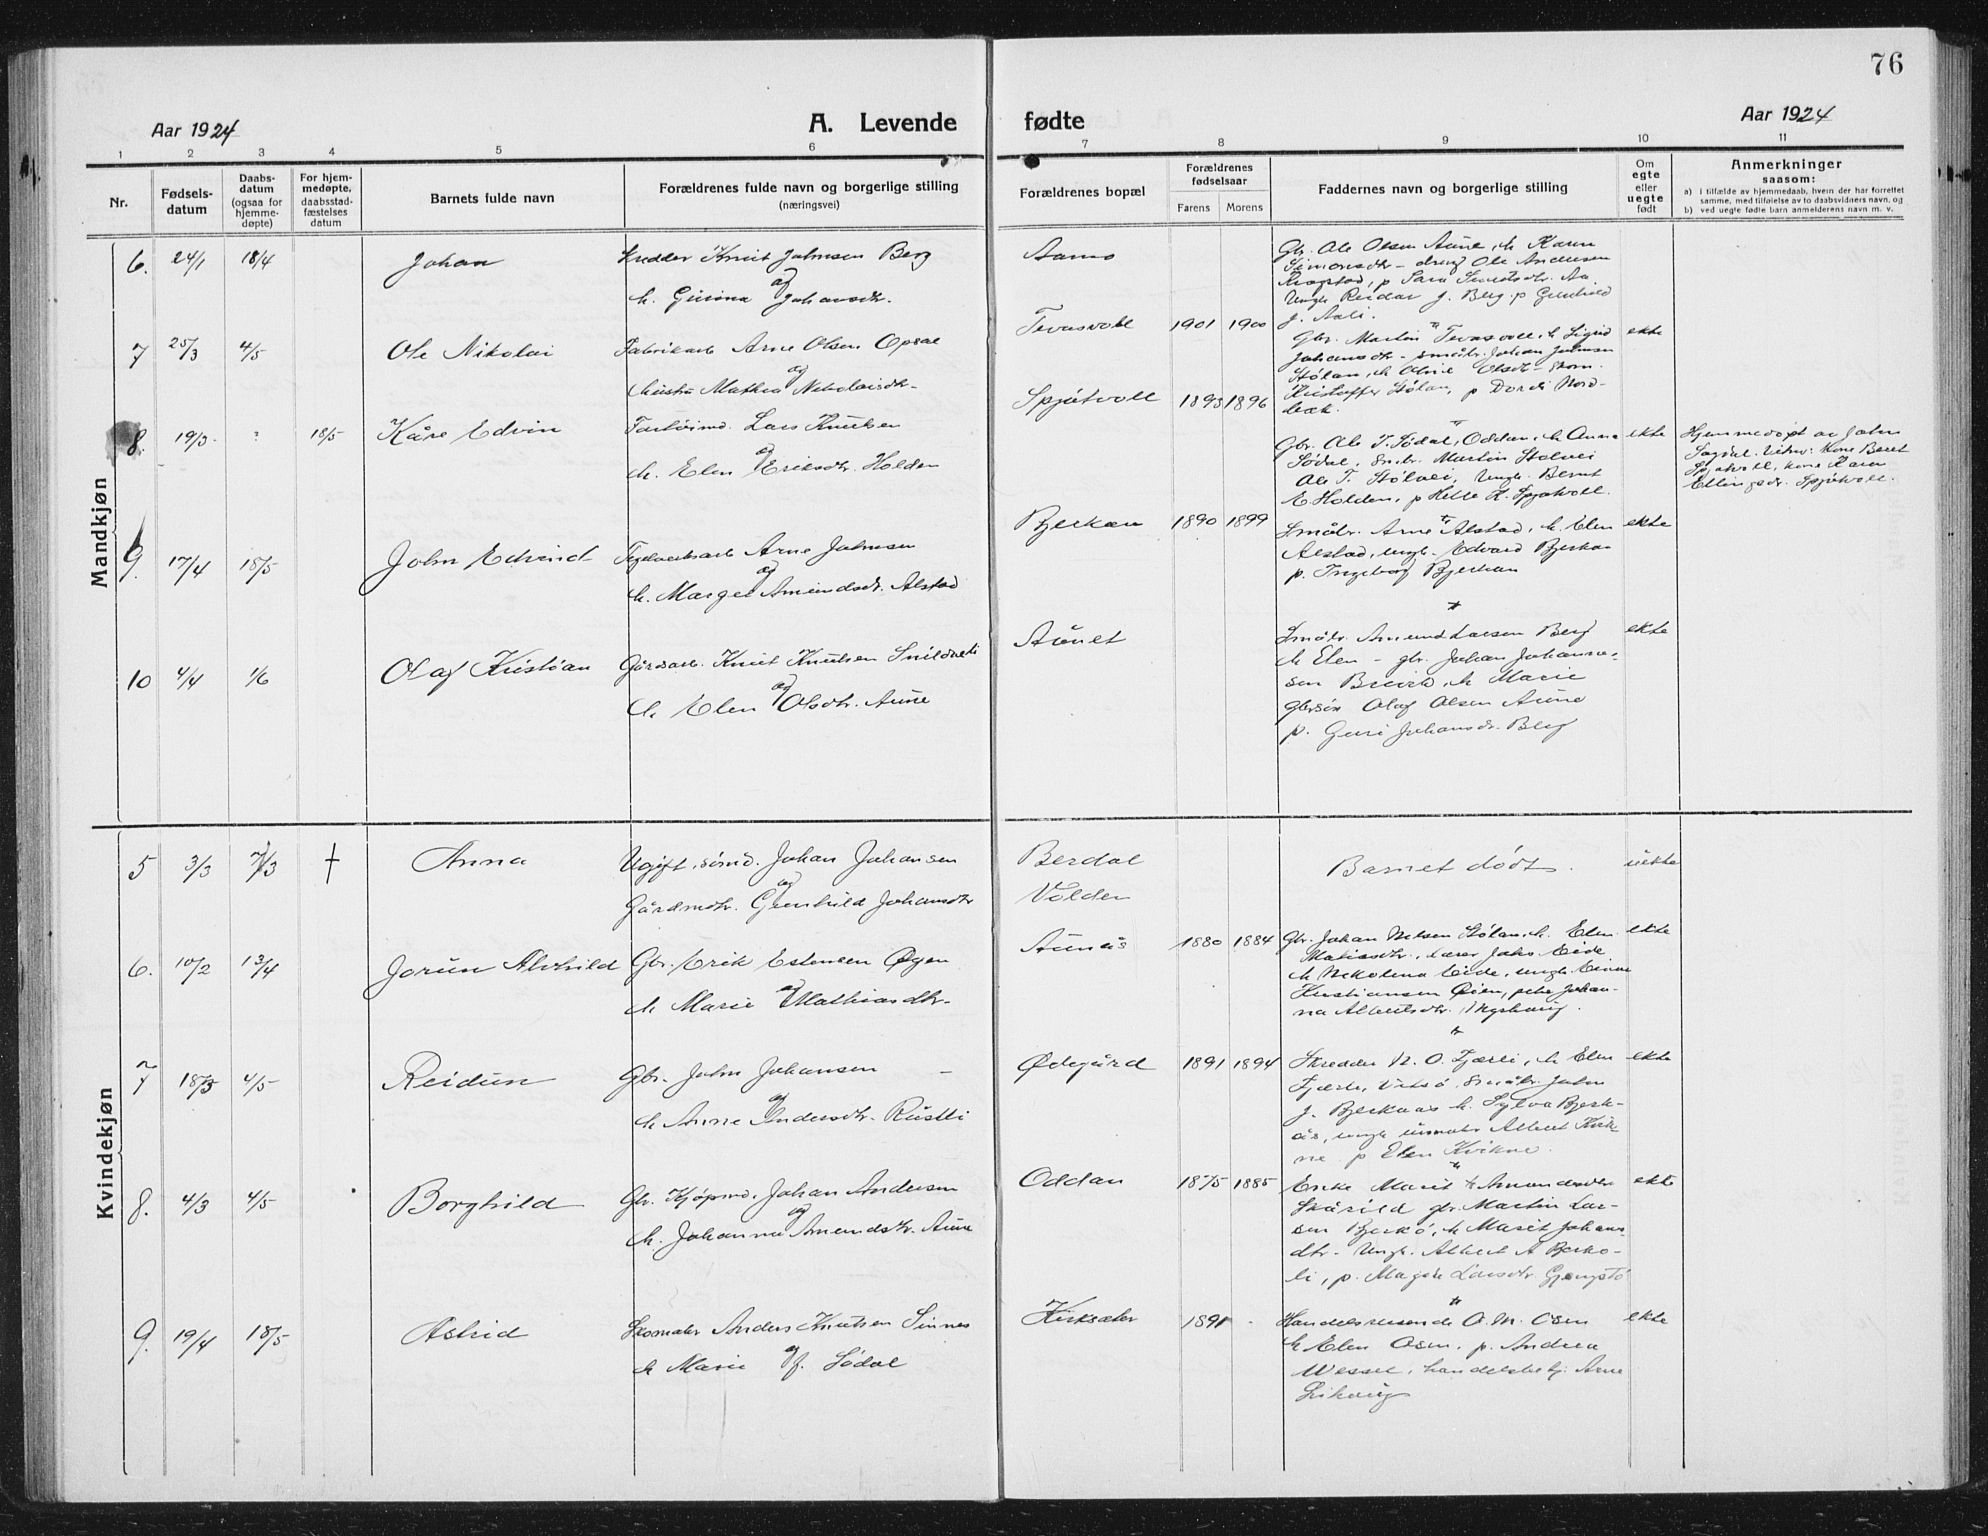 76
Aar 1924
A. Levende
fødte
Aar 1924
1 2 3 4 5 6 7 8 9 10 11
Nr.
Fødsels-
datum
Daabs-
datum
(ogsaa for
hjemme-
døpte)
For hjem-
medøpte,
daabsstad-
fæstelses
datum
Barnets fulde navn
Forældrenes fulde navn og borgerlige stilling
(næringsvei)
Forældrenes bopæl
Forældrenes
fødselsaar
Farens Morens
Faddernes navn og borgerlige stilling
Om
egte
eller
uegte
født
Anmerkninger
saasom:
a) i tilfælde av hjemmedaab, hvem der har forrettet
samme, med tilføielse av to daabsvidners navn, og
b) ved uegte fødte barn anmelderens navn m. v.
Mandkjøn
6. 24/1 18/4 Johan
Skredder Knut Johnsen Berg
og
h. Gurina Johansdtr.
Gbr. Ole Olsen Aune, h. Karen
Simonsdtr - dreng Ole Andersen
Ungk. Reidar J. Berg, p. Gunhild
7 25/3 4/5 Ole Nikolai
Fabrikarb. Arne Olsen Opsal
og
Mathea Nikolaisdtr.
Tevasvoll 1901 1900
Gbr. Martin Tevasvoll, h. Sigrid
Johansdtr - småbr. Johan Johnsen
Stølan, h. Olsdtr
Kristoffer Stølan, p. Dordi Nord-
bæk.
ekte
8. 19/3 ? 18/5 Kåre Edvin
Lars Knutsen
og
h. Elen Eriksdtr. Holden
Spjøtvoll 1893 1896
Gbr. Ole T. Sødal, Oddan, h. Anna
Sødal, Smbr. Martin Stølvei
Ole T. Stølvei, Ungk. Bernt
E. Holden, p. H. Spjøtvoll.
ekte
Hjemmedøpt av John
Sagdal. Vitner: Kone Beret
Spjøtvoll, kone Karen
Ellingsdr. Spjøtvoll.
9. 17/4 18/5 John Edvind
Teglverksarb. Arne Johnsen
og
h. Margit Amundsdr. Alstad
Bjerkan 1890 1899
Småbr. Arne Alstad, h. Elen
Alstad, ungk. Edvard Bjerkan
p. Ingeborg Bjerkan
ekte
10 4/4 1/6 Olaf Kristian
Gårdsarb. Knut Knutsen Snildveli
og
h. Elen Olsdtr. Aune
Aunet
Småbr. Amund Larsen Berg
h. Elen - gbr. Johan Johanne-
sen h. Marie
gbrsøn Olaf Olsen Aune
p. Guri Johansdr. Berg
ekte
Kvindekjøn
5 3/3 7/3 † Anna
Ugift, sømd. Johan Johansen
og
Gårdmdtr. Gunhild Johansdtr
Berdal
Volden
Barnet dødt.
uekte
6. 10/2 13/4 Jorun Alvhild
Gbr. Erik Estensen Øyen
og
h. Marie Mathiasdtr.
Aunås 1880 1884
Gbr. Johan Nelsen Stølan, h. Elen
Matiasdtr., Lærer Jahs Eide
h. Nikolena Eide, ungk. Einar
Kristiansen Øien, Johan-
na Albertsdtr.
ekte
7 18/3 4/5 Reidun
Gbr. John Johansen
og
h. Anne Andersdtr. Rustli
Ødegård 1891 1894
Skredder N. O. Fjærli, h. Elen
Fjærli, Vitsø, Småbr. John
J. Bjerkaas h. Sylva Bjerk-
ås, ungk. urmaker Albert Kvik-
ne p Elen Kvikne.
ekte
8. 4/3 4/5 Borghild
Gbr. Kjøpmd. Johan Andersen
og
h. Johanna Amundsdtr. Aune
Oddan 1875 1885
Enke Marit Amundsdtr
Skårild gbr. Martin Lar-
sen Bjerkø, h. Marit Johans-
dtr. Ungk. Albert A Bjerkø-
li, p. Larsdtr Gjengstø
ekte
9. 19/4 18/5 Astrid
Skomaker Anders Knutsen Sinnes
og
h. Marie J. Sødal
Kirksæter 1891 -
Handelsreisende O. M. Osen
h. Elen Osen, p. Andrea
Wessel, handelsbetj. Arne
ekte